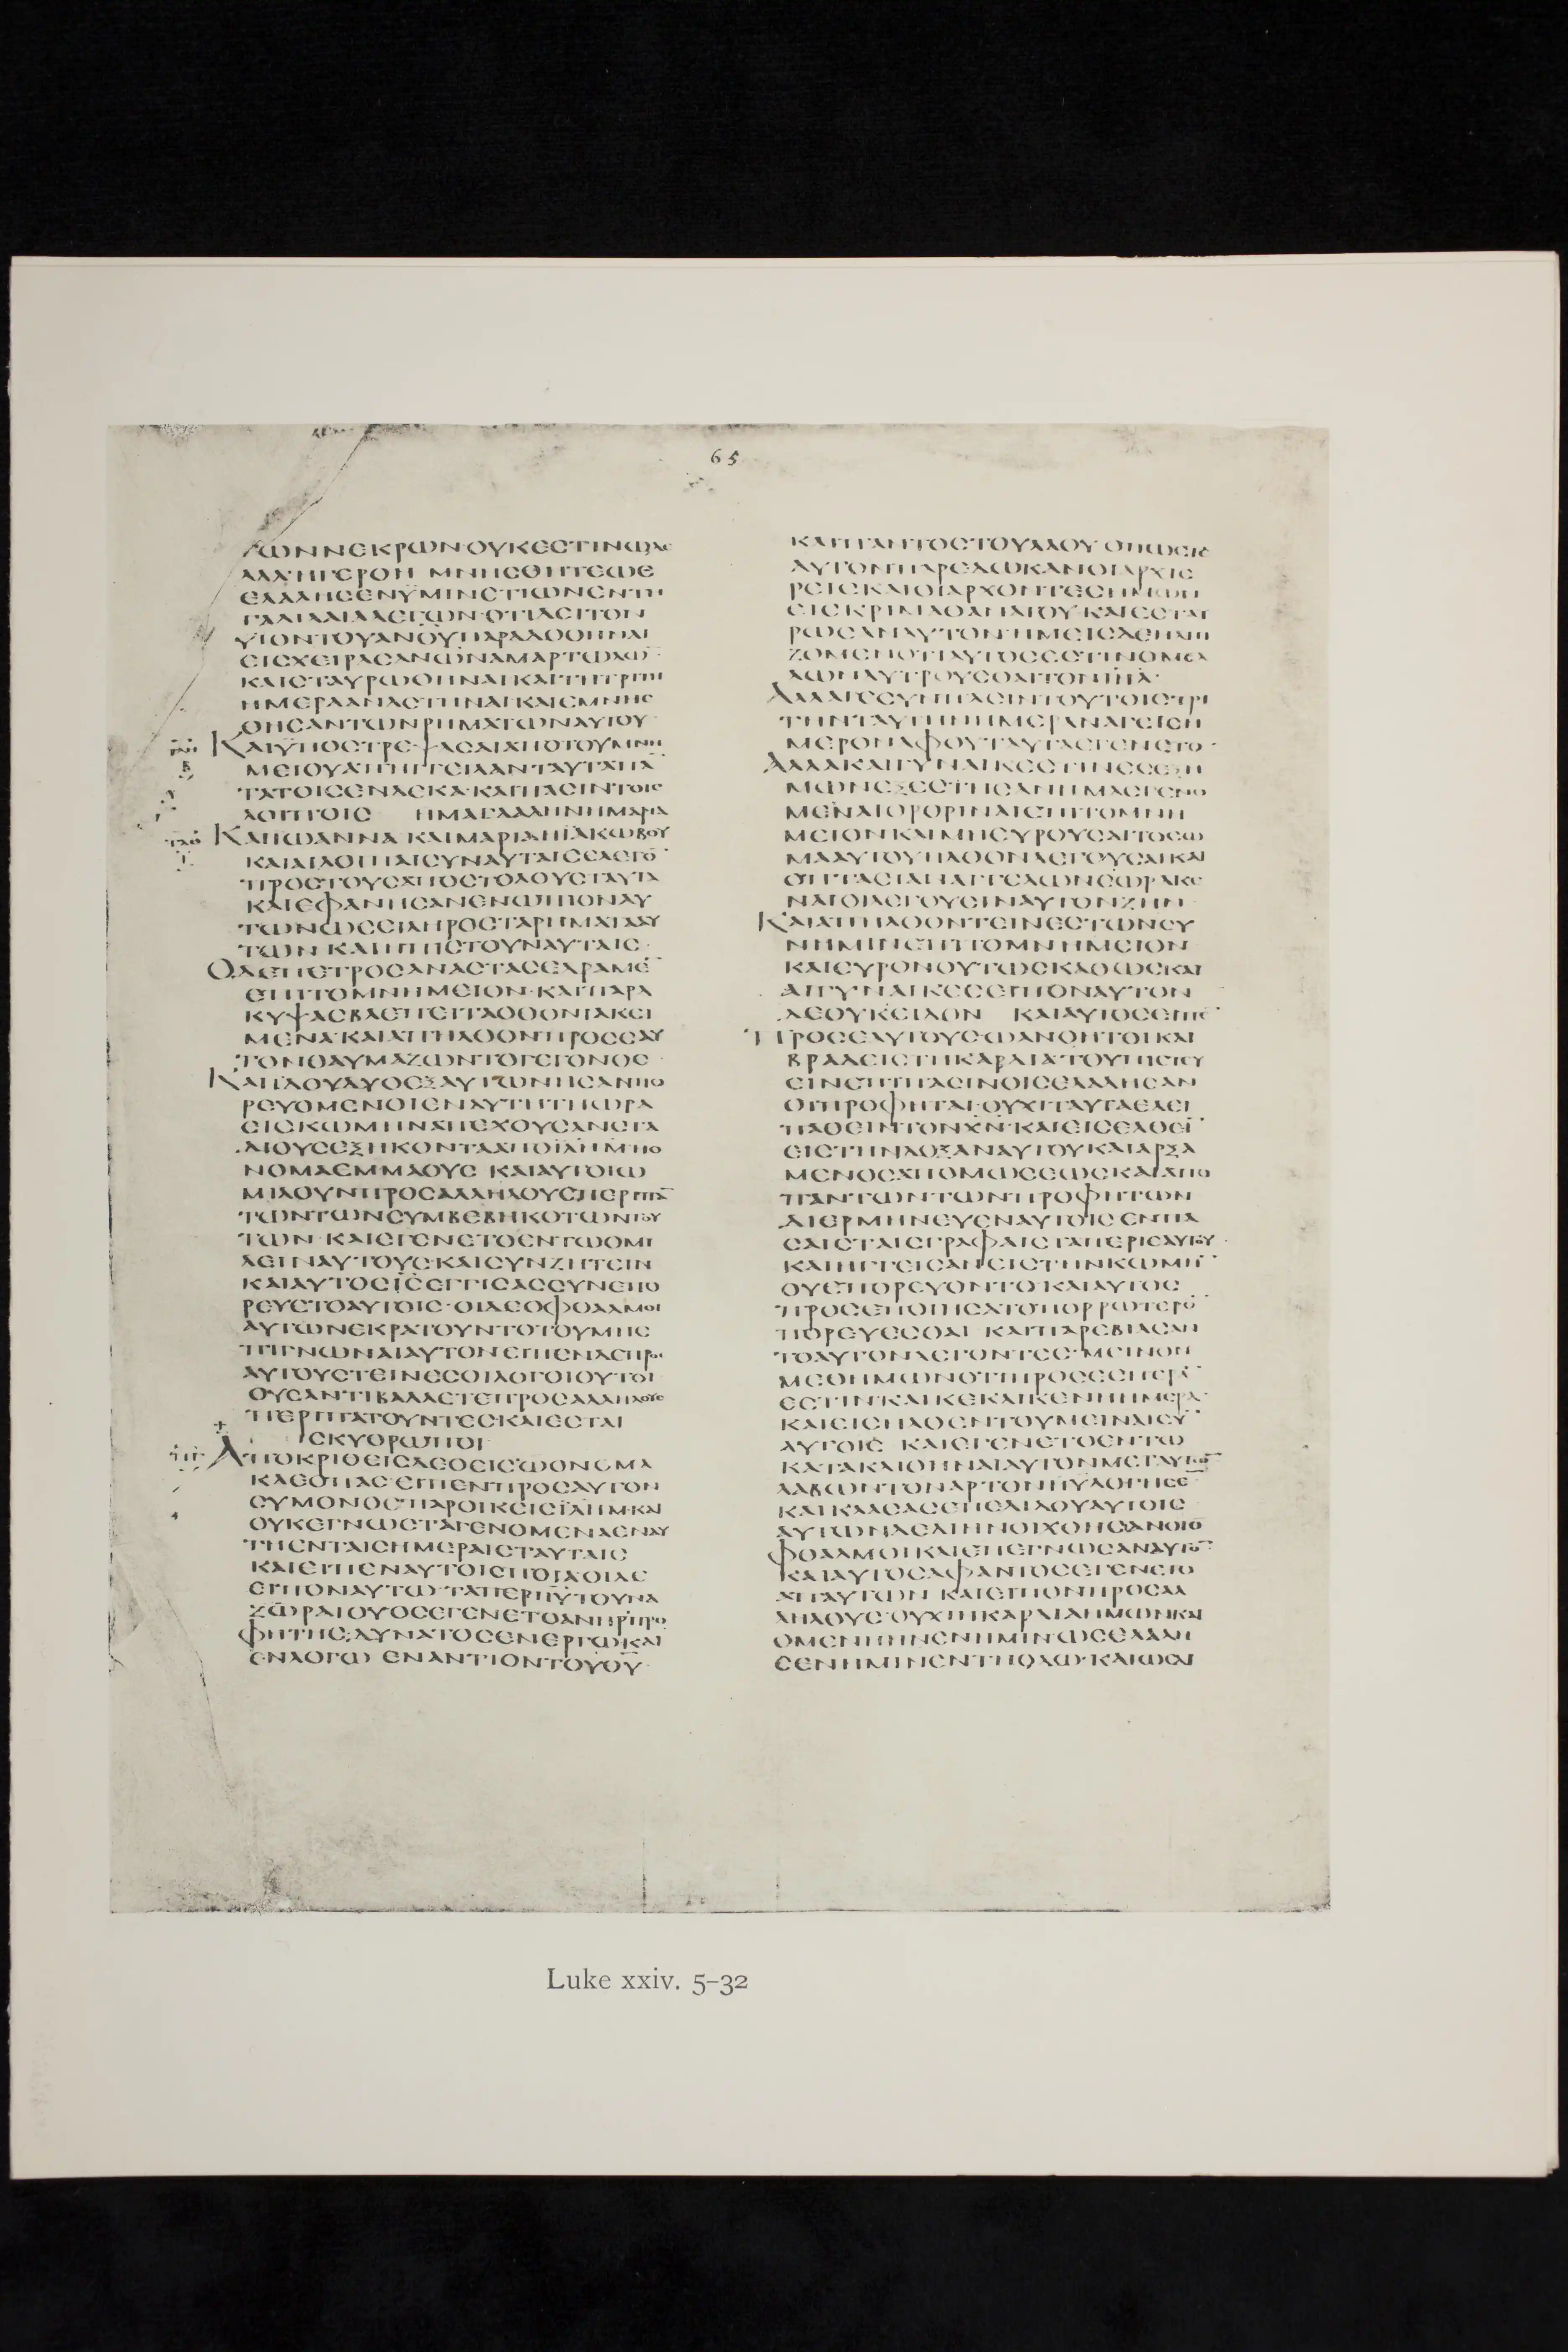 65
ΤΩΝΝΕΚΡΩΝ·ΟΥΚΕϹΤΙΝΩΔΕ
ΑΛΛΗΓΕΡΘΗ ΜΝΗϹΘΗΤΕΩϹ
ΕΛΑΛΗϹΕΝΥΜΙΝΕΤΙΩΝΕΝΤΗ
ΓΑΛΙΛΑΙΑΛΕΓΩΝ·ΟΤΙΔΕΙΤΟΝ
ΥΙΟΝΤΟΥΑΝΟΥΠΑΡΑΔΟΘΗΝΑΙ
ΕΙϹΧΕΙΡΑϹΑΝΩΝΑΜΑΡΤΩΛΩ̅
ΚΑΙϹΤΑΥΡΩΘΗΝΑΙΚΑΙΤΗΤΡΙΤΗ
ΗΜΕΡΑΑΝΑϹΤΗΝΑΙΚΑΙΕΜΝΗϹ
ΘΗϹΑΝΤΩΝΡΗΜΑΤΩΝΑΥΤΟΥ
ΚΑΙΫΠΟϹΤΡΕΨΑϹΑΙΑΠΟΤΟΥΜΝΗ
ΜΕΙΟΥΑΠΗΓΓΕΙΛΑΝΤΑΥΤΑΠΑ̅
ΤΑΤΟΙϹΕΝΔΕΚΑ·ΚΑΙΠΑϹΙΝΤΟΙϹ
ΛΟΙΠΟΙϹ ΗΜΑΓΔΑΛΗΝΗΜΑΡΙΑ
ΚΑΙΙΩΑΝΝΑ ΚΑΙΜΑΡΙΑΗΪΑΚΩΒΟΥ
ΚΑΙΑΙΛΟΙΠΑΙϹΥΝΑΥΤΑΙϹΕΛΕΓΟ̅
ΠΡΟϹΤΟΥϹΑΠΟϹΤΟΛΟΥϹΤΑΥΤΑ
ΚΑΙΕΦΑΝΗϹΑΝΕΝΩΠΙΟΝΑΥ
ΤΩΝΩϹΕΙΛΗΡΟϹΤΑΡΗΜΑΤΑΑΥ
ΤΩΝ ΚΑΙΗΠΙϹΤΟΥΝΑΥΤΑΙϹ·
ΟΔΕΠΕΤΡΟϹΑΝΑϹΤΑϹΕΔΡΑΜΕ̅
ΕΠΙΤΟΜΝΗΜΕΙΟΝ·ΚΑΙΠΑΡΑ
ΚΥΨΑϹΒΛΕΠΕΙΤΑΟΘΟΝΙΑΚΕΙ
ΜΕΝΑ·ΚΑΙΑΠΗΛΘΟΝΠΡΟϹΕΑΥ
ΤΟΝΘΑΥΜΑΖΩΝΤΟΓΕΓΟΝΟϹ·
ΚΑΙΪΔΟΥΔΥΟΕΞΑΥΤΩΝΗϹΑΝΠΟ
ΡΕΥΟΜΕΝΟΙΕΝΑΥΤΗΤΗΩΡΑ
ΕΙϹΚΩΜΗΝΑΠΕΧΟΥϹΑΝϹΤΑ
ΔΙΟΥϹΕΞΗΚΟΝΤΑΑΠΟΪΛΗΜ·ΗΟ
ΝΟΜΑΕΜΜΑΟΥϹ ΚΑΙΑΥΤΟΙΩ
ΜΙΛΟΥΝΠΡΟϹΑΛΛΗΛΟΥϹΠΕΡΙΠΑ̅
ΤΩΝΤΩΝϹΥΜΒΕΒΗΚΟΤΩΝΤΟΥ
ΤΩΝ·ΚΑΙΕΓΕΝΕΤΟΕΝΤΩΟΜΙ
ΛΕΙΝΑΥΤΟΥϹ·ΚΑΙϹΥΝΖΗΤΕΙΝ
ΚΑΙΑΥΤΟϹΙ̅Ϲ̅ΕΓΓΙϹΑϹϹΥΝΕΠΟ
ΡΕΥΕΤΟΑΥΤΟΙϹ·ΟΙΔΕΟΦΘΑΛΜΟΙ
ΑΥΤΩΝΕΚΡΑΤΟΥΝΤΟΤΟΥΜΗΕ
ΠΙΓΝΩΝΑΙΑΥΤΟΝΕΙΠΕΝΔΕΠΡΟϹ
ΑΥΤΟΥϹΤΕΙΝΕϹΟΙΛΟΓΟΙΟΥΤΟΙ
ΟΥϹΑΝΤΙΒΑΛΛΕΤΕΠΡΟϹΑΛΛΗΛΟΥϹ
ΠΕΡΙΠΑΤΟΥΝΤΕϹΚΑΙΕϹΤΑΙ
ϹΚΥΘΡΩΠΟΙ
ΑΠΟΚΡΙΘΕΙϹΔΕΟΕΙϹΩΟΝΟΜΑ
ΚΛΕΟΠΑϹ·ΕΙΠΕΝΠΡΟϹΑΥΤΟΝ
ϹΥΜΟΝΟϹΠΑΡΟΙΚΕΙϹΪΛΗΜ·ΚΑΙ
ΟΥΚΕΓΝΩϹΤΑΓΕΝΟΜΕΝΑΕΝΑΥ
ΤΗΕΝΤΑΙϹΗΜΕΡΑΙϹΤΑΥΤΑΙϹ
ΚΑΙΕΙΠΕΝΑΥΤΟΙϹΠΟΙΑΟΙΔΕ
ΕΙΠΟΝΑΥΤΩ·ΤΑΠΕΡΙΙ̅Υ̅ΤΟΥΝΑ
ΖΩΡΑΙΟΥΟϹΕΓΕΝΕΤΟΑΝΗΡΠΡΟ
ΦΗΤΗϹ·ΔΥΝΑΤΟϹΕΝΕΡΓΩΚΑΙ
ΕΝΛΟΓΩ ΕΝΑΝΤΙΟΝΤΟΥΘ̅Υ̅·
ΚΑΙΠΑΝΤΟϹΤΟΥΛΑΟΥ ΟΠΩϹΤΕ
ΑΥΤΟΝΠΑΡΕΔΩΚΑΝΟΙΑΡΧΙΕ
ΡΕΙϹΚΑΙΟΙΑΡΧΟΝΤΕϹΗΜΩΝ
ΕΙϹΚΡΙΜΑΘΑΝΑΤΟΥ·ΚΑΙΕϹΤΑΥ
ΡΩϹΑΝΑΥΤΟΝ·ΗΜΕΙϹΔΕΗΛΠΙ
ΖΟΜΕΝΟΤΙΑΥΤΟϹΕϹΤΙΝΟΜΕΛ
ΛΩΝΛΥΤΡΟΥϹΘΑΙΤΟΝΙ̅Η̅Λ̅·
ΑΛΛΑΓΕϹΥΝΠΑϹΙΝΤΟΥΤΟΙϹΤΡΙ
ΤΗΝΤΑΥΤΗΝΗΜΕΡΑΝΑΓΕΙϹΗ
ΜΕΡΟΝΑΦΟΥΤΑΥΤΑΕΓΕΝΕΤΟ·
ΑΛΛΑΚΑΙΓΥΝΑΙΚΕϹΤΙΝΕϹΕΞΗ
ΜΩΝΕΞΕϹΤΗϹΑΝΗΜΑϹΓΕΝΟ
ΜΕΝΑΙΟΡΘΡΙΝΑΙΕΠΙΤΟΜΝΗ
ΜΕΙΟΝΚΑΙΜΗΕΥΡΟΥϹΑΙΤΟϹΩ
ΜΑΑΥΤΟΥΗΛΘΟΝΛΕΓΟΥϹΑΙΚΑΙ
ΟΠΤΑϹΙΑΝΑΓΓΕΛΩΝΕΩΡΑΚΕ
ΝΑΙΟΙΛΕΓΟΥϹΙΝΑΥΤΟΝΖΗΝ·
ΚΑΙΑΠΗΛΘΟΝΤΙΝΕϹΤΩΝϹΥ
ΝΗΜΙΝΕΠΙΤΟΜΝΗΜΕΙΟΝ
ΚΑΙΕΥΡΟΝΟΥΤΩϹΚΑΘΩϹΚΑΙ
ΑΙΓΥΝΑΙΚΕϹΕΙΠΟΝΑΥΤΟΝ
ΔΕΟΥΚΕΙΔΟΝ ΚΑΙΑΥΤΟϹΕΙΠΕ̅
ΠΡΟϹΑΥΤΟΥϹΩΑΝΟΗΤΟΙΚΑΙ
ΒΡΑΔΕΙϹΤΗΚΑΡΔΙΑΤΟΥΠΙϹΤΕΥ
ΕΙΝΕΠΙΠΑϹΙΝΟΙϹΕΛΑΛΗϹΑΝ
ΟΙΠΡΟΦΗΤΑΙ·ΟΥΧΙΤΑΥΤΑΕΔΕΙ
ΠΑΘΕΙΝΤΟΝΧ̅Ν̅·ΚΑΙΕΙϹΕΛΘΕΙ̅
ΕΙϹΤΗΝΔΟΞΑΝΑΥΤΟΥΚΑΙΑΡΞΑ
ΜΕΝΟϹΑΠΟΜΩϹΕΩϹΚΑΙΑΠΟ
ΠΑΝΤΩΝΤΩΝΠΡΟΦΗΤΩΝ
ΔΙΕΡΜΗΝΕΥΕΝΑΥΤΟΙϹΕΝΠΑ
ϹΑΙϹΤΑΙϹΓΡΑΦΑΙϹΤΑΠΕΡΙΕΑΥΤΟΥ·
ΚΑΙΗΓΓΕΙϹΑΝΕΙϹΤΗΝΚΩΜΗ̅
ΟΥΕΠΟΡΕΥΟΝΤΟ·ΚΑΙΑΥΤΟϹ
ΠΡΟϹΕΠΟΙΗϹΑΤΟΠΟΡΡΩΤΕΡΩ
ΠΟΡΕΥΕϹΘΑΙ ΚΑΙΠΑΡΕΒΙΑϹΑΝ
ΤΟΑΥΤΟΝΛΕΓΟΝΤΕϹ·ΜΕΙΝΟΝ
ΜΕΘΗΜΩΝΟΤΙΠΡΟϹΕϹΠΕΡΑ̅
ΕϹΤΙΝ·ΚΑΙΚΕΚΛΙΚΕΝΗΗΜΕΡΑ·
ΚΑΙΕΙϹΗΛΘΕΝΤΟΥΜΕΙΝΑΙϹΥ̅
ΑΥΤΟΙϹ ΚΑΙΕΓΕΝΕΤΟΕΝΤΩ
ΚΑΤΑΚΛΙΘΗΝΑΙΑΥΤΟΝΜΕΤΑΥΤΩ̅
ΛΑΒΩΝΤΟΝΑΡΤΟΝΗΥΛΟΓΗϹΕ̅
ΚΑΙΚΛΑϹΑϹΕΠΕΔΙΔΟΥΑΥΤΟΙϹ
ΑΥΤΩΝΔΕΔΙΗΝΟΙΧΘΗϹΑΝΟΙΟ
ΦΘΑΛΜΟΙΚΑΙΕΠΕΓΝΩϹΑΝΑΥΤΟ̅
ΚΑΙΑΥΤΟϹΑΦΑΝΤΟϹΕΓΕΝΕΤΟ
ΑΠΑΥΤΩΝ ΚΑΙΕΙΠΟΝΠΡΟϹΑΛ
ΛΗΛΟΥϹ·ΟΥΧΙΗΚΑΡΔΙΑΗΜΩΝΚΑΙ
ΟΜΕΝΗΗΝΕΝΗΜΙΝ·ΩϹΕΛΑΛΗ
ϹΕΝΗΜΙΝΕΝΤΗΟΔΩ·ΚΑΙΩϹΔΙ
Luke xxiv. 5–32